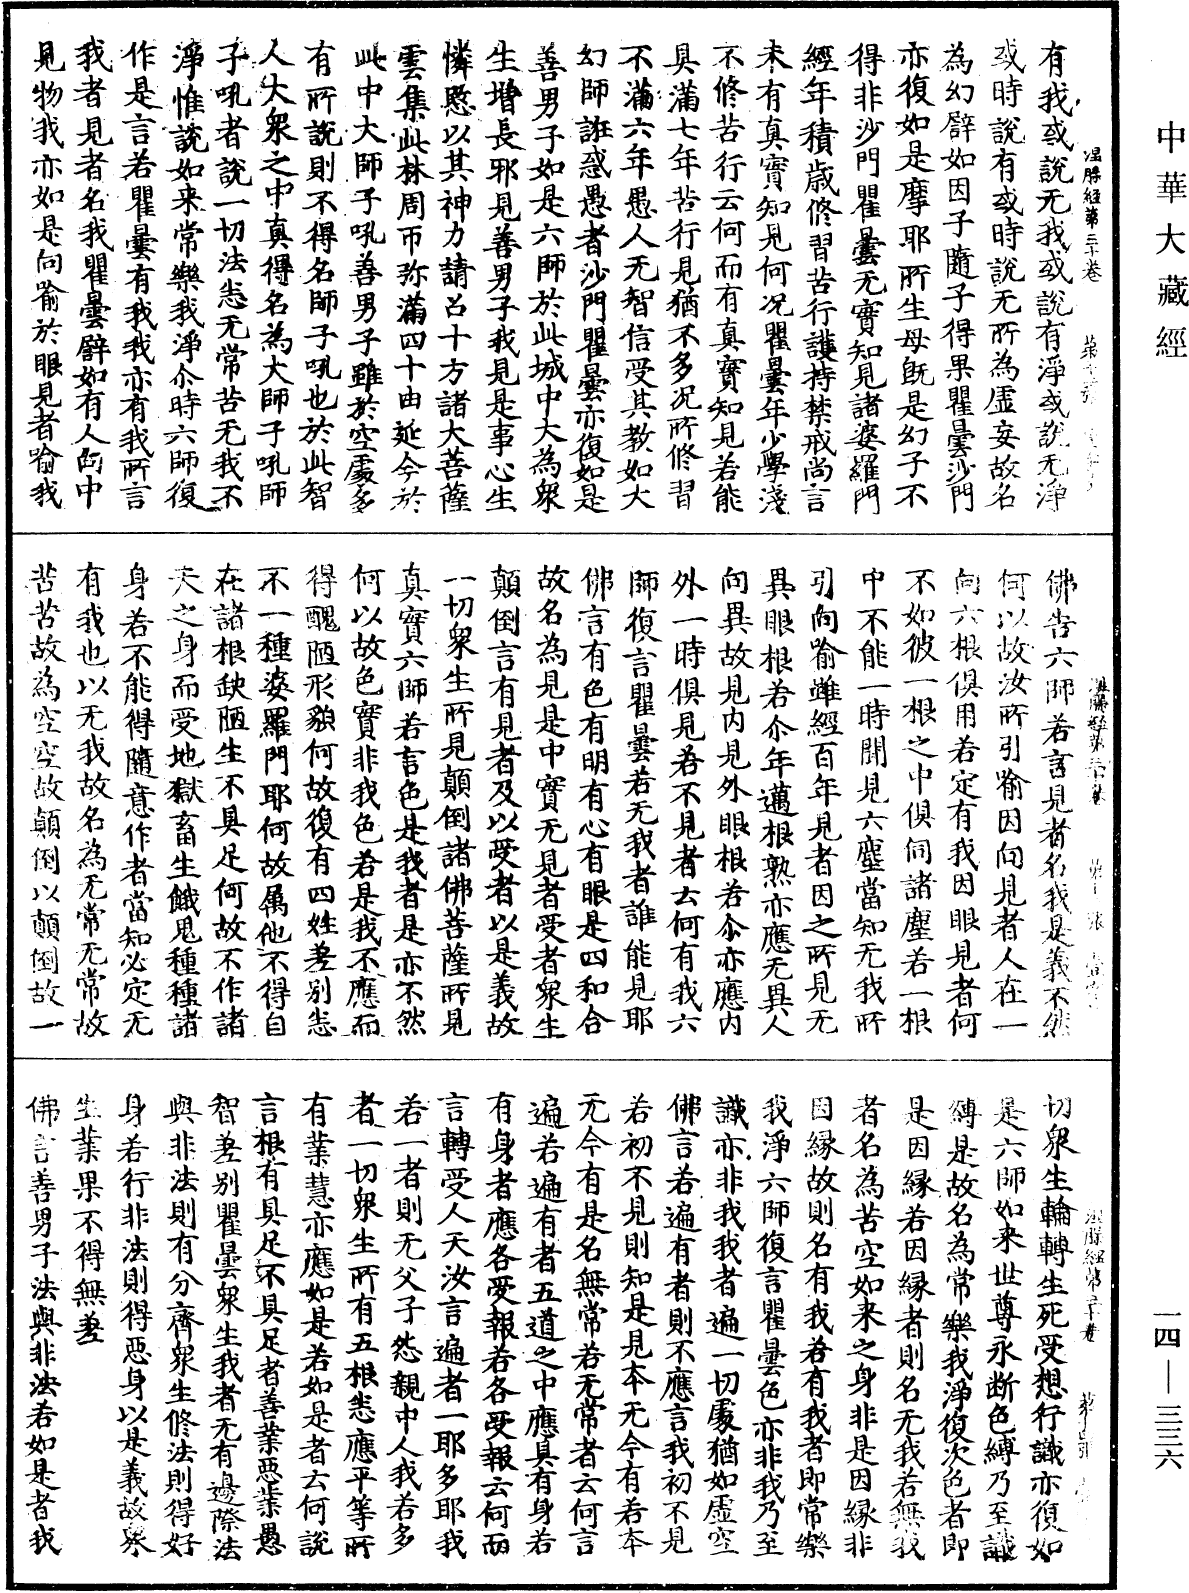 中華大藏經
一四—三三六
有我或說无我或說有淨或說无淨
或時說有或時說无所為虛妄故名
為幻譬如因子隨子得果瞿曇沙門
亦復如是摩耶所生母既是幻子不
得非沙門瞿曇无實知見諸婆羅門
經年積歲修習苦行護持禁戒尚言
未有真實知見何况瞿曇年少學淺
不修苦行云何而有真實知見若能
具滿七年苦行見猶不多况所修習
不滿六年愚人无智信受其教如大
幻師誑惑愚者沙門瞿曇亦復如是
善男子如是六師於此城中大為衆
生增長邪見善男子我見是事心生
憐愍以其神力請召十方諸大菩薩
雲集此林周帀弥滿四十由延今於
此中大師子吼善男子雖於空處多
有所說則不得名師子吼也於此智
人大衆之中真得名為大師子吼師
子吼者說一切法悉无常苦无我不
淨惟說如来常樂我淨尒時六師復
作是言若瞿曇有我我亦有我所言
我者見者名我瞿曇譬如有人向中
見物我亦如是向喻於眼見者喻我
佛告六師若言見者名我是義不然
何以故汝所引喻因向見者人在一
向六根俱用若定有我因眼見者何
不如彼一根之中俱伺諸塵若一根
中不能一時聞見六塵當知无我所
引向喻雖經百年見者因之所見无
異眼根若尒年邁根熟亦應无異人
向異故見内見外眼根若尒亦應内
外一時俱見若不見者云何有我六
師復言瞿曇若无我者誰能見耶
佛言有色有明有心有眼是四和合
故名為見是中實无見者受者衆生
顛倒言有見者及以受者以是義故
一切衆生所見顛倒諸佛菩薩所見
真實六師若言色是我者是亦不然
何以故色實非我色若是我不應而
得醜陋形貌何故復有四姓差别悉
不一種婆羅門耶何故属他不得自
在諸根缺陋生不具足何故不作諸
天之身而受地獄畜生餓鬼種種諸
身若不能得隨意作者當知必定无
有我也以无我故名為无常无常故
苦苦故為空空故顛倒以顛倒故一
切衆生輪轉生死受想行識亦復如
是六師如来世尊永断色縛乃至識
縛是故名為常樂我淨復次色者即
是因緣若因緣者則名无我若無我
者名為苦空如来之身非是因緣非
因緣故則名有我若有我者即常樂
我淨六師復言瞿曇色亦非我乃至
識亦非我我者遍一切處猶如虛空
佛言若遍有者則不應言我初不見
若初不見則知是見本无今有若本
无今有是名無常若无常者云何言
遍若遍有者五道之中應具有身若
有身者應各受報若各受報云何而
言轉受人天汝言遍者一耶多耶我
若一者則无父子怨親中人我若多
者一切衆生所有五根悉應平等所
有業慧亦應如是若如是者云何說
言根有具足不具足者善業惡業愚
智差别瞿曇衆生我者无有邊際法
與非法則有分齊衆生修法則得好
身若行非法則得惡身以是義故衆
生業果不得無差
佛言善男子法與非法若如是者我